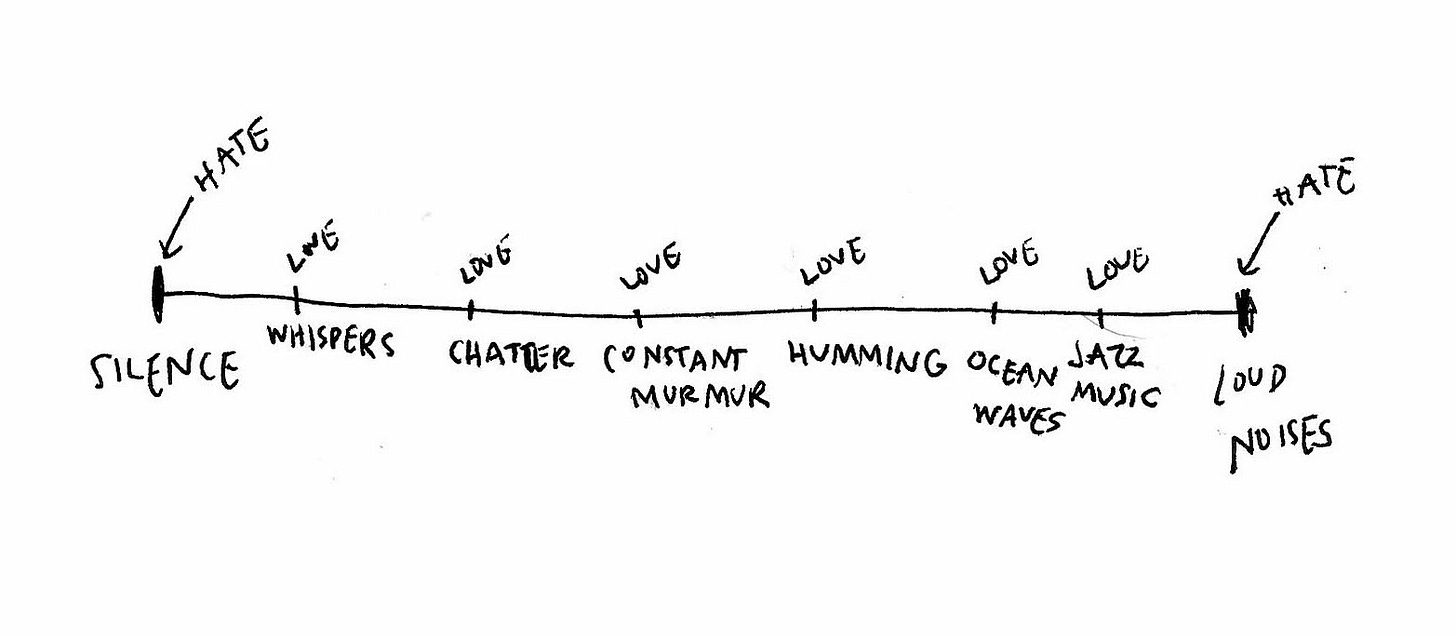 HATE
HATE
LOVE
LOVE
LOVE
LOVE
LOVE
LOVE
SILENCE
WHISPERS
CHATTER
CONSTANT
MURMUR
HUMMING
OCEAN
WAVES
JAZZ
MUSIC
LOUD
NOISES